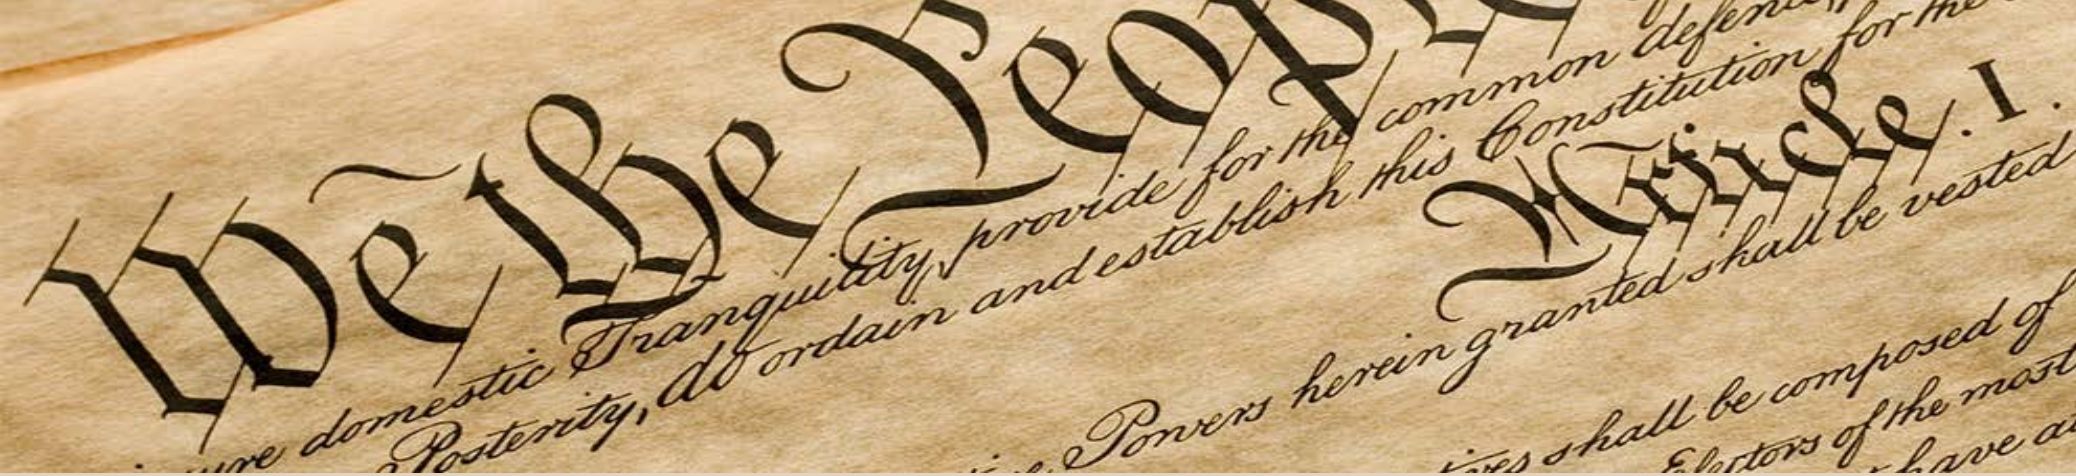 We the People
domestic Tranquility, provide for the common defence,
Posterity, do ordain and establish this Constitution for the
Article. I.
Powers herein granted shall be vested
shall be composed of
Electors of the most
have